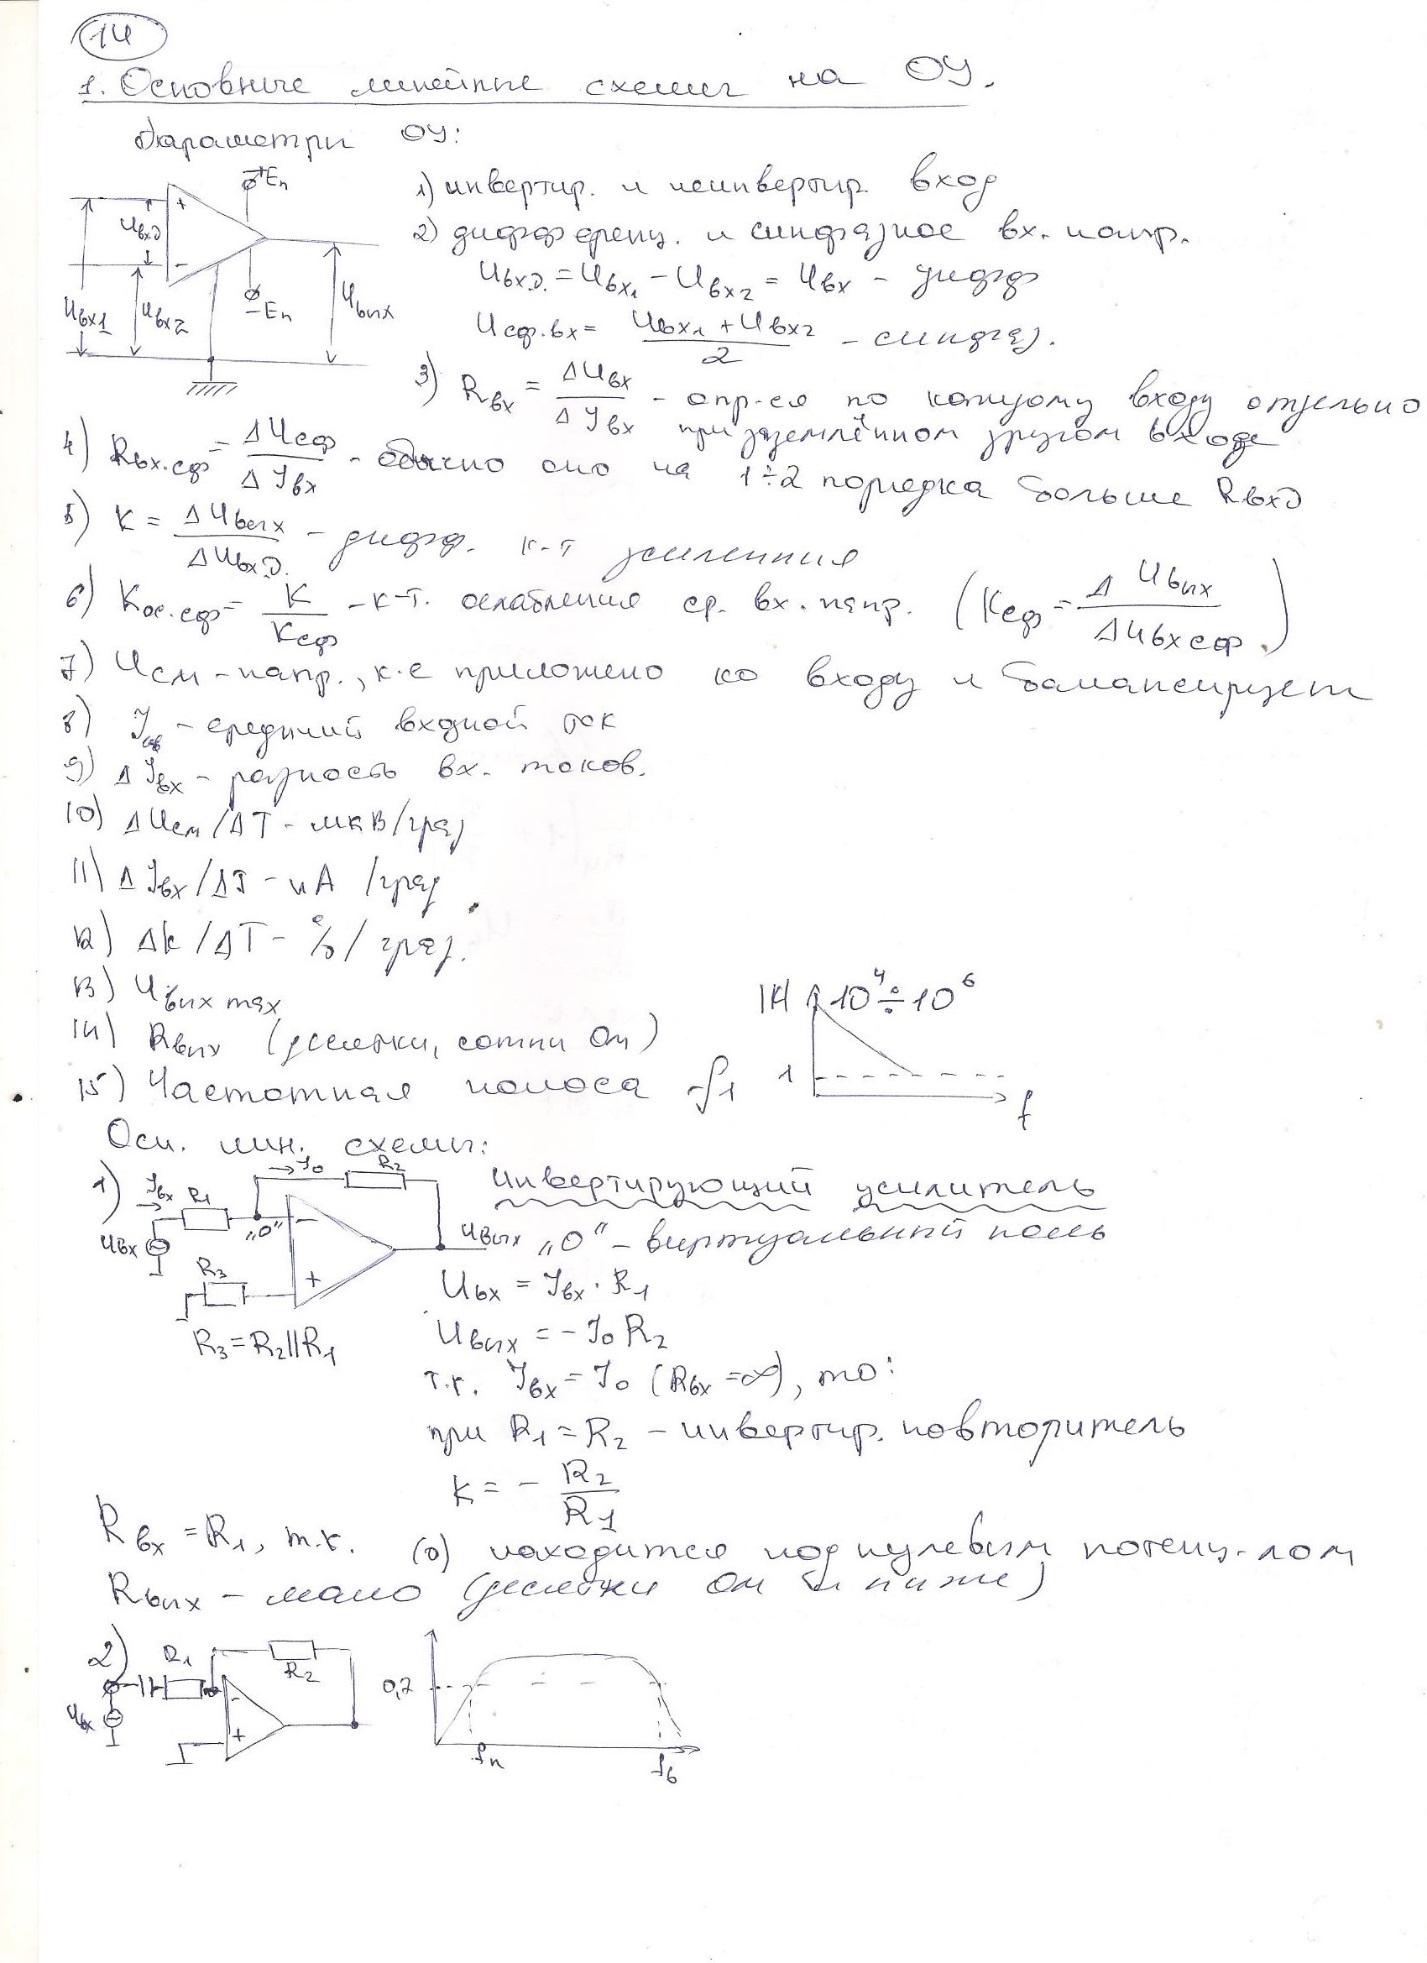 14
1. Основные линейные схемы на ОУ.
Параметры ОУ:
+Eп
Uвх.д
+
-
-Eп
Uвх1
Uвх2
Uвых
1) инвертир. и неинвертир. вход
2) дифференц. и синфазное вх. напр.
Uвх.д. = Uвх1 - Uвх2 = Uвх - дифф
Uсф.вх = (Uвх1 + Uвх2)/2 - синфаз.
3) Rвх = ΔUвх/ΔIвх - опр-ся по каждому входу отдельно
при заземлённом другом входе
4) Rвх.сф = ΔUсф/ΔIвх - обычно оно на 1÷2 порядка больше Rвхд
5) K = ΔUвых/ΔUвх.д. - дифф. к-т усиления
6) Kос.сф = K/Kсф - к-т. ослабления сф. вх. напр. (Kсф = ΔUвых/ΔUвх сф.)
7) Uсм - напр., к-е приложено ко входу и балансирует
8) Iсф - средний входной ток
9) ΔIвх - разность вх. токов.
10) ΔUсм/ΔT - мкВ/град
11) ΔIвх/ΔT - нА/град
12) ΔK/ΔT - %/град.
13) Uвых max
14) Rвых (десятки, сотни Ом)
15) Частотная полоса - f1
|K| 10⁴÷10⁶
1
f
Осн. лин. схемы:
1) Iвх R1 I0 R2
Uвх „0" - + Uвых
R3
R3 = R2||R1
Инвертирующий усилитель
„0" - виртуальный ноль
Uвх = Iвх · R1
Uвых = - I0 R2
т.к. Iвх = I0 (Rвх = ∞), то:
при R1 = R2 - инвертир. повторитель
K = - R2/R1
Rвх = R1, т.к. (0) находится под нулевым потенц-лом
Rвых - мало (десятки Ом и ниже)
2) R1 R2
Uвх - +
0,7
fн fв